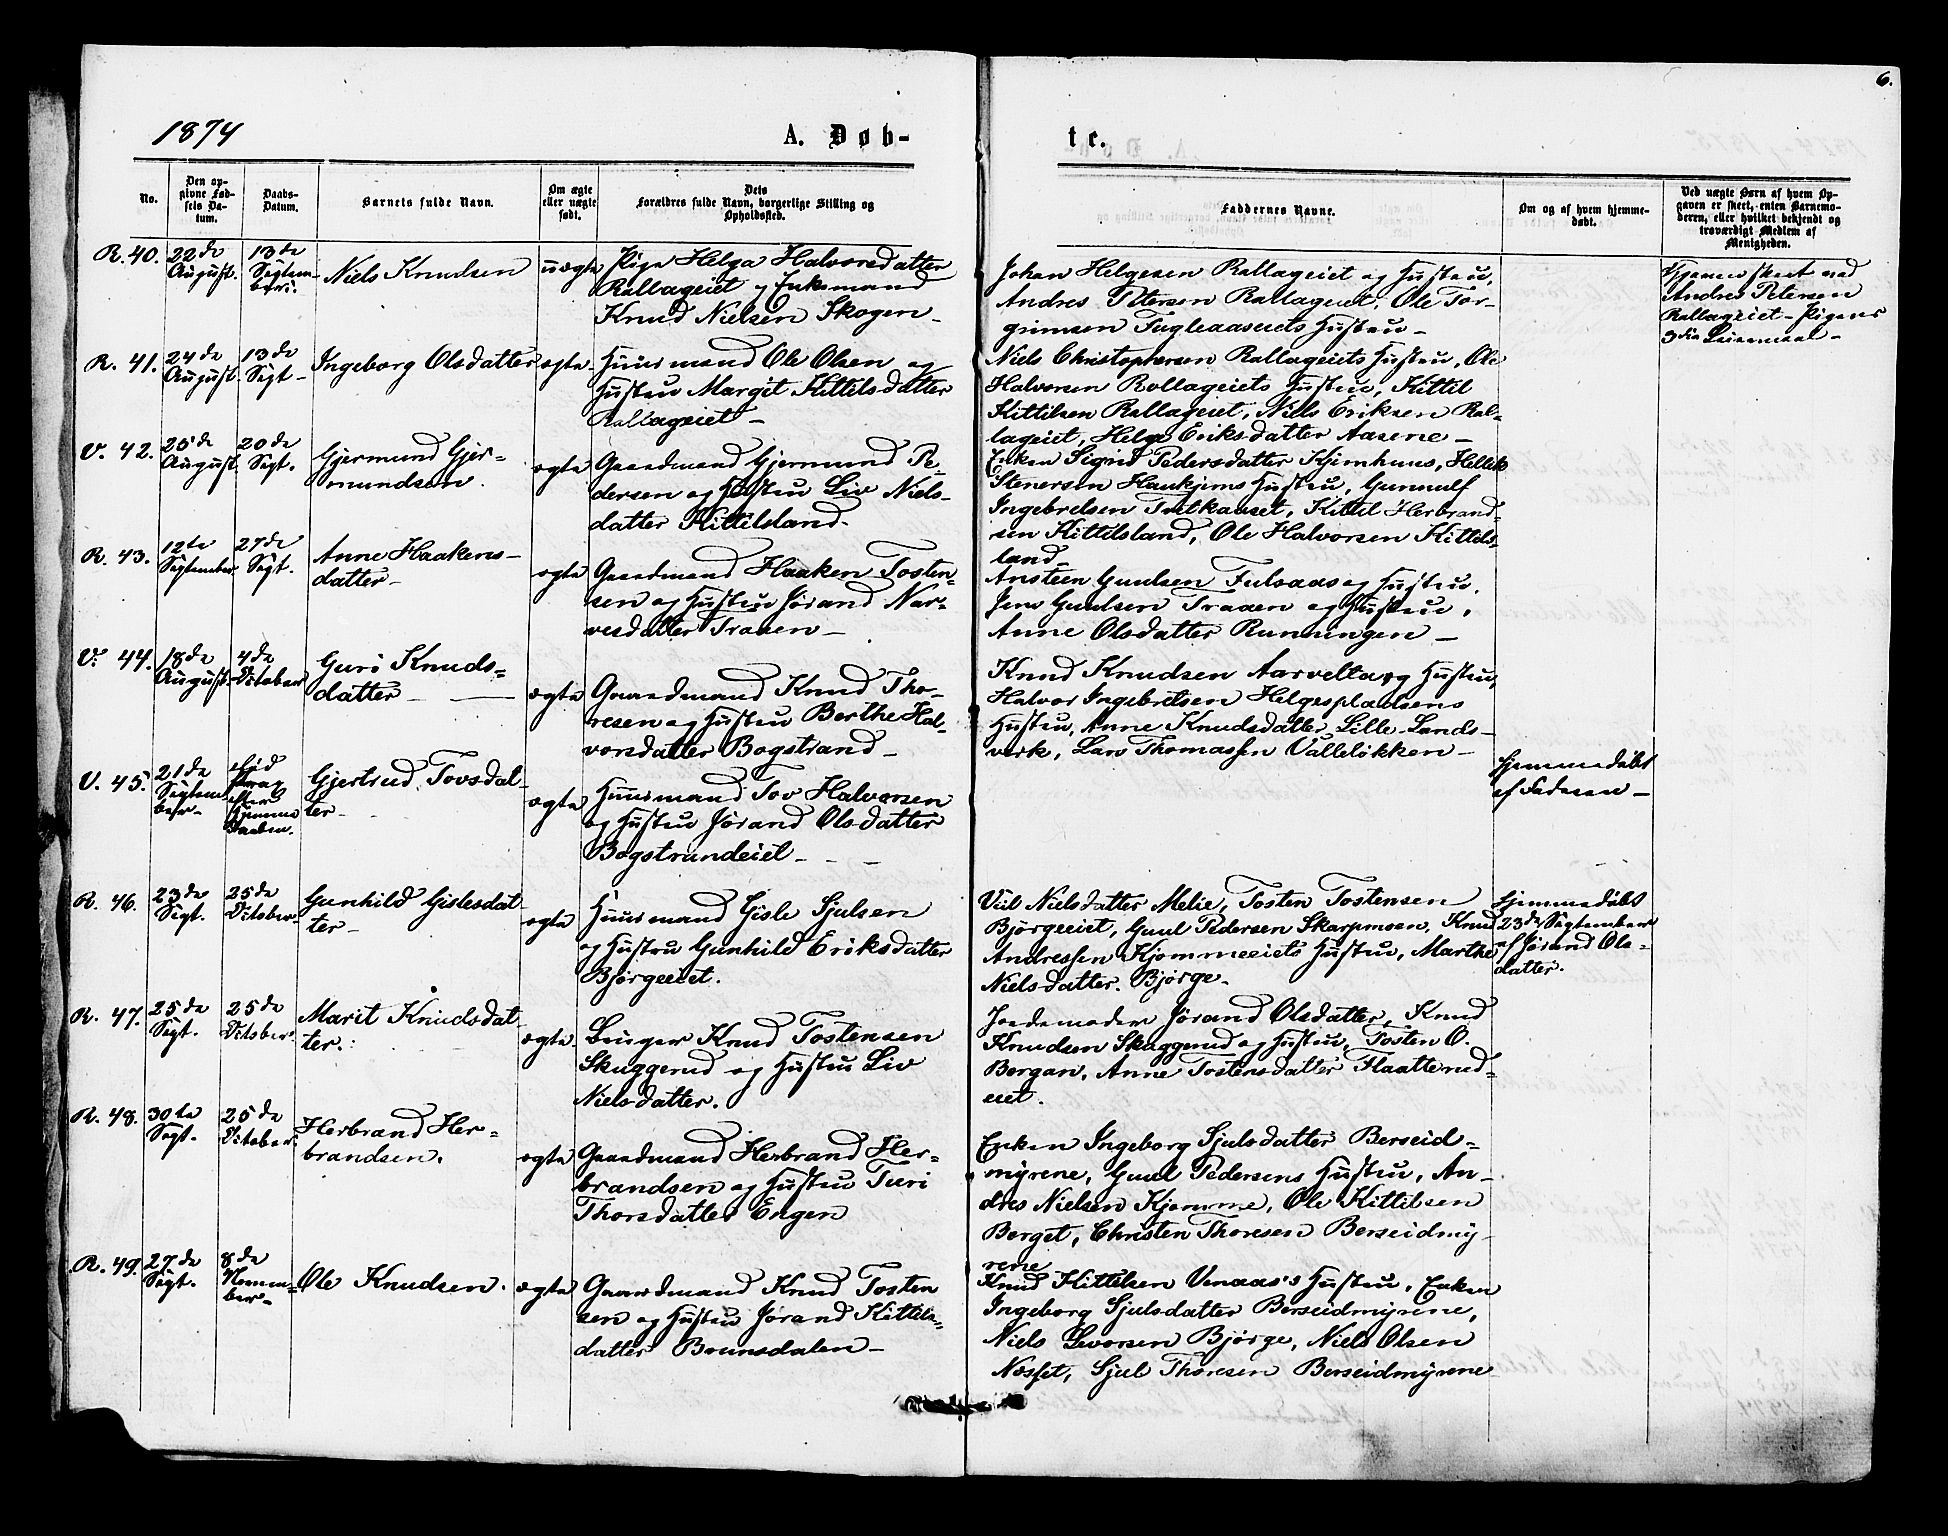 6.
1874
A. Døb-
te.
No.
Den op-
givne Fød-
sels Da-
tum.
Daabs-
Datum.
Barnets fulde Navn.
Om ægte
eller uægte
født.
Dets
Forældres fulde Navn, borgerlige Stilling og
Opholdssted.
Faddernes Navne.
Om og af hvem hjemme-
døbt.
Ved uægte Børn af hvem Op-
gaven er skeet, enten Barnemo-
deren, eller hvilket bekjendt og
troværdigt Medlem af
Menigheden.
R. 40.
22de
August.
13de
Septem-
ber.
Niels Knudsen
uægte
Pige Helga Halvorsdatter
Rallageiet og Enkemand
Knud Nielsen Skogen
Johan Helgesen Rallageiet og Hustru,
Andres Petersen Rallageiet, Ole Tor-
grimsen Fugleaasens Hustru
Andres Petersen
Rallageiet - Pigens
3die Leiermaal -
R. 41.
24de
August.
13de
Sept -
Ingeborg Olsdatter
ægte
Huusmand Ole Olsen og
Hustru Margit Kittilsdatter
Rallageiet -
Niels Christophersen Rallageiets Hustru, Ole
Halvorsen Rollageiets Hustru, Kittil
Kittilsen Rallageiet, Niels Eriksen Ral-
lageiet, Helge Eriksdatter Aasene -
V. 42.
25de
August.
20de
Sept.
Gjermund Gjer-
mundsen.
ægte
Gaardmand Gjermund Pe-
dersen og Hustru Liv Niels-
datter Kittilsland.
Enken Sigrid Pedersdatter Kjemhuus, Hellik
Stenersen Haukjems Hustru, Gunnulf
Ingebretsen, Kittil Herbrand-
sen Kittilsland, Ole Halvorsen Kittils-
land
R. 43.
12te
September
27de
Sept.
Anne Haakens-
datter -
ægte
Gaardmand Haaken Tosten-
sen og Hustru Jørand Nar-
vesdatter Traaen -
Ansteen Guulsen Fulsaas og Hustru,
Jens Guulsen Traaen og Hustru,
Anne Olsdatter Runningen -
V. 44.
18de
August.
4de
October
Guri Knuds-
datter -
ægte
Gaardmand Knud Tho-
resen og Hustru Berthe Hal-
vorsdatter Bogstrand -
Knud Knudsen Aarvelta og Hustru,
Halvor Ingebretsen Helgespladsens
Hustru, Anne Knudsdatter Lille-Lands-
verk, Lars Thomassen Valleløkken -
V. 45.
21de
Septem-
ber -
død
strax
efter
Hjemme
daaben.
Gjertrud Tovsdat-
ter -
ægte
Huusmand Tov Halvorsen
og Hustru Jørand Olsdatter
Bogstrandeiet -
Hjemmedøbt
af Faderen -
R. 46.
23de
Sept.
25de
October
Gunhild Gislesdat-
ter -
ægte
Huusmand Gisle Sjulsen
og Hustru Gunhild Eriksdatter
Bjørgeeiet.
Nielsdatter Melie, Tosten Tostensen
Bjørgeeiet, Guul Pedersen Skarpmoen, Knud
Andressen Kjommeeiets Hustru, Marthe
Nielsdatter. Bjørge.
Hjemmedøbt
23de September
af Jørand Ols-
datter.
R. 47.
25de
Sept.
25de
October
Marit Knudsdat-
ter.
ægte
Knud Tostensen
Skuggerud og Hustru Liv
Nielsdatter.
Jordemoder Jørand Olsdatter, Knud
Knudsen Skuggerud og Hustru, Tosten O.
Bergan, Anne Tostensdatter Flaatterud-
eiet.
R. 48.
30te
Sept.
25de
October
Herbrand Her-
brandsen.
ægte
Gaardmand Herbrand Her-
brandsen og Hustru Turi
Thorsdatter Engen
Enken Ingeborg Sjulsdatter Berseid-
myrene, Guul Pedersens Hustru, An-
dres Nielsen Kjomme, Ole Kittilsen
Berget, Christen Thoresen Berseidmy-
rene
R. 49.
27de
Sept.
8de
Novem-
ber -
Ole Knudsen.
ægte
Gaardmand Knud Tosten
sen og Hustru Jørand Kittils-
datter Brunsdalen -
Knud Kittilsen Venaas's Hustru, Enken
Ingeborg Sjulsdatter Berseidmyrene,
Niels Levorsen Bjørge, Niels Olsen
Næsset, Sjul Thoresen Berseidmyrene